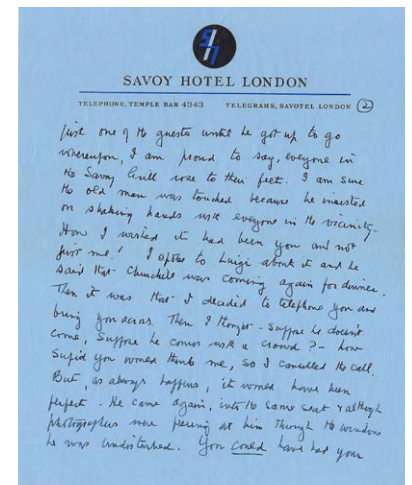 SAVOY HOTEL LONDON
TELEPHONE, TEMPLE BAR 4343 TELEGRAMS, SAVOTEL LONDON 2
just one of the guests until he got up to go
whereupon, I am proud to say, everyone in
the Savoy Grill rose to their feet. I am sure
the old man was touched because he insisted
on shaking hands with everyone in the vicinity.
How I wished it had been you and not
just me! I spoke to Luigi about it and he
said that Churchill was coming again for dinner.
Then it was that I decided to telephone you and
bring you across. Then I thought - suppose he doesn't
come, suppose he comes with a crowd? - how
stupid you would think me, so I cancelled the call.
But, as always happens, it would have been
perfect. He came again, into the same seat & although
photographers were peering at him through the windows
he was undisturbed. You could have had your